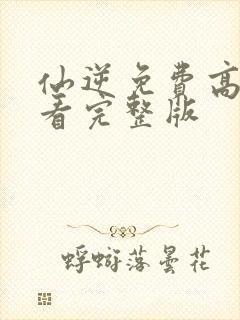 仙逆免费高
看完整版
蜉蝣落昙花